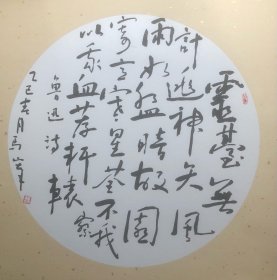 靈臺無
計逃神矢風
雨如磐暗故園
寄意寒星荃不我
以我血荐軒轅
察
魯迅詩
乙巳春月馬